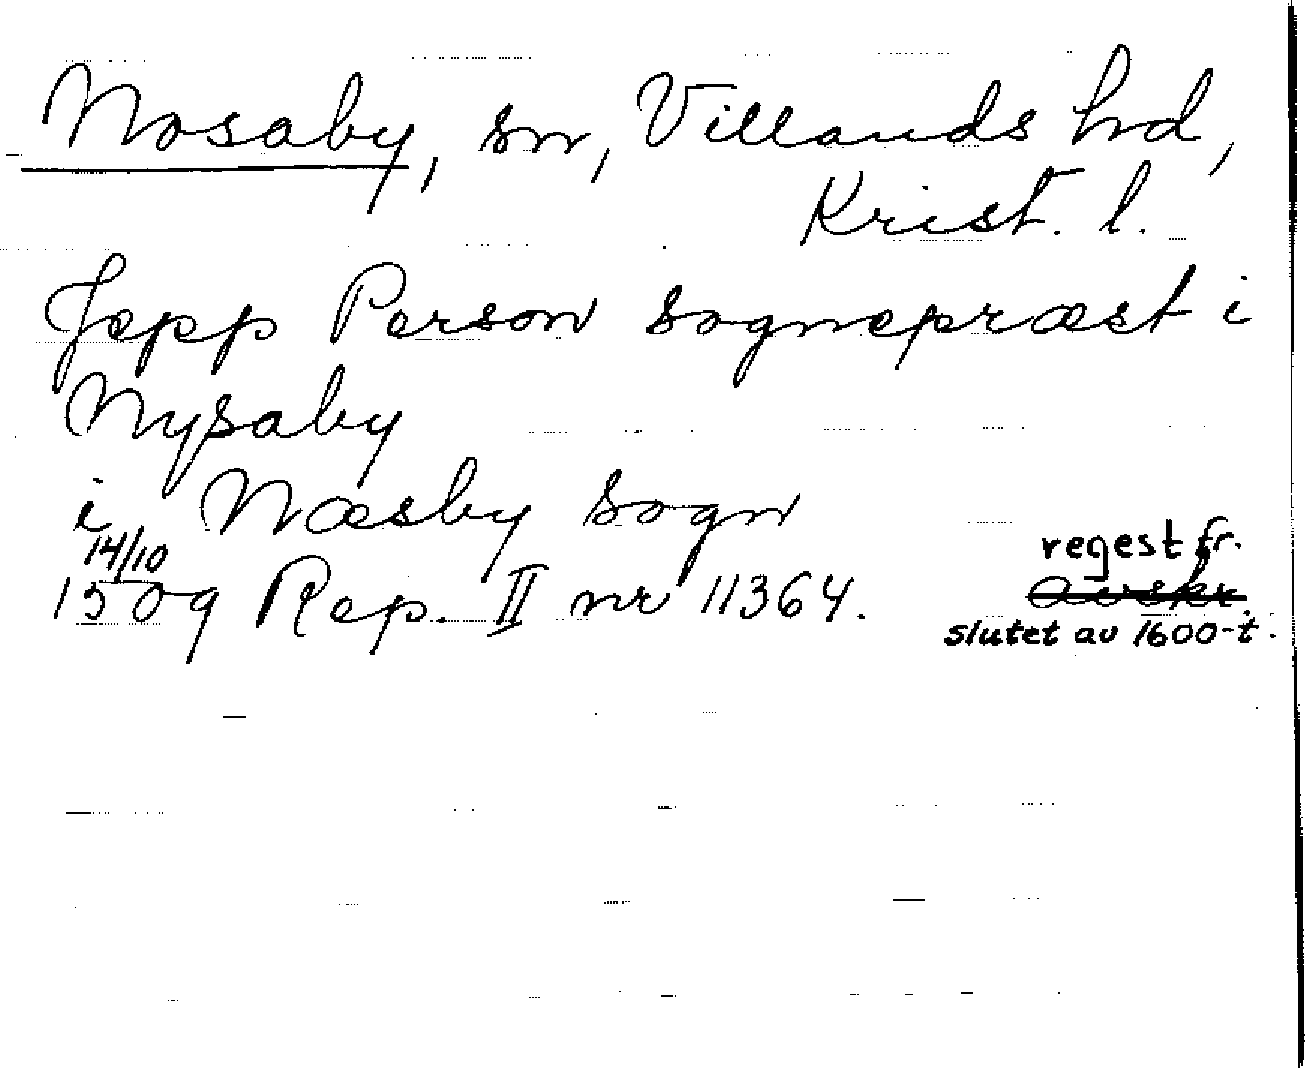 Nosaby, sn, Villands hd,
Krist. l.
Jepp Person sognepræst i
Nysaby
i Næsby sogn
14/10
1509 Rep. II nr 11364.
regest fr.
avskr.
slutet av 1600-t.